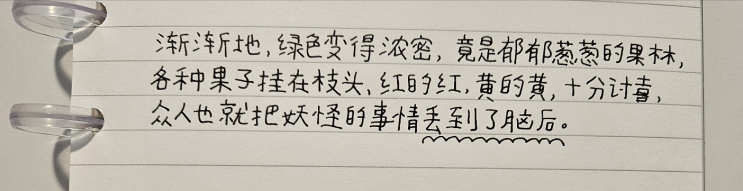 渐渐地，绿色变得浓密，竟是郁郁葱葱的果林，
各种果子挂在枝头、红的红，黄的黄，十分讨喜，
众人也就把妖怪的事情丢到了脑后。